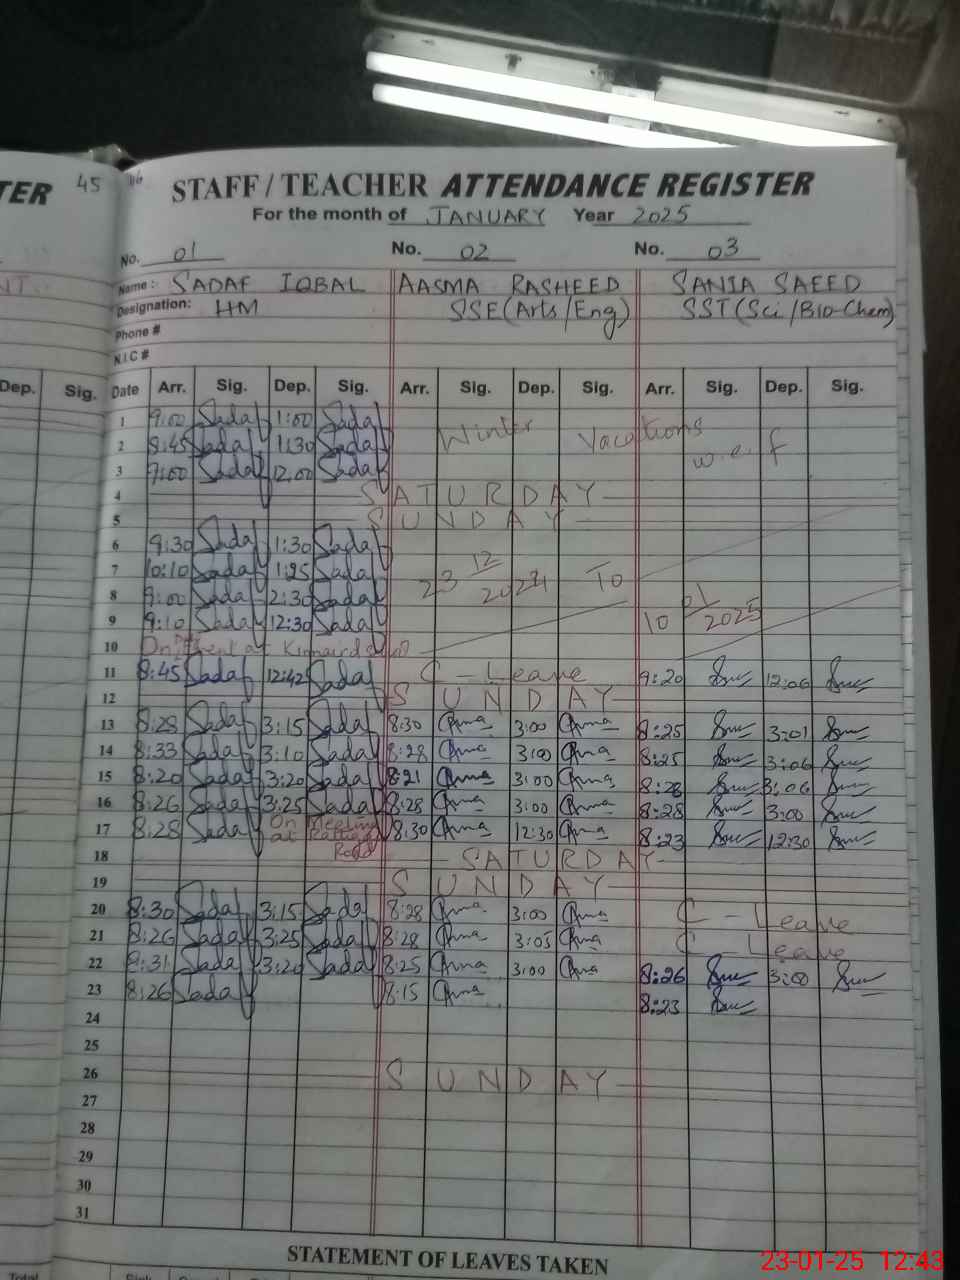 TER 45 46
STAFF / TEACHER ATTENDANCE REGISTER
For the month of JANUARY Year 2025
No. 01 No. 02 No. 03
Name: SADAF IQBAL AASMA RASHEED SANIA SAEED
Designation: HM SSE(Arts/Eng) SST(Sci/Bio-Chem)
Phone #
N.I.C #
Dep. Sig. Date Arr. Sig. Dep. Sig. Arr. Sig. Dep. Sig. Arr. Sig. Dep. Sig.
1 9:00 Sadaf 1:00 Sadaf
Winter Vacations
2 8:45 Sadaf 1:30 Sadaf w.e.f
3 9:00 Sadaf 12:00 Sadaf
4 SATURDAY
5 SUNDAY
6 9:30 Sadaf 1:30 Sadaf
7 10:10 Sadaf 1:25 Sadaf 23 12/2024 To
8 9:00 Sadaf 2:30 Sadaf
9 9:10 Sadaf 12:30 Sadaf 10 01/2025
10 On event at Kinnaird
11 8:45 Sadaf 12:42 Sadaf C - Leave 9:20 12:06
12 SUNDAY
13 8:28 Sadaf 3:15 Sadaf 8:30 3:00 8:25 3:01
14 8:33 Sadaf 3:10 Sadaf 8:28 3:00 8:25 3:06
15 8:20 Sadaf 3:20 Sadaf 8:21 3:00 8:28 3:06
16 8:26 Sadaf 3:25 Sadaf 8:28 3:00 8:28 3:00
17 8:28 Sadaf On Meeting at Road 8:30 12:30 8:23 12:30
18 SATURDAY
19 SUNDAY
20 8:30 Sadaf 3:15 Sadaf 8:28 3:00 C - Leave
21 8:26 Sadaf 3:25 Sadaf 8:28 3:05 C - Leave
22 8:31 Sadaf 3:20 Sadaf 8:25 3:00 8:26 3:00
23 8:26 Sadaf 8:15 8:23
24
25
26 SUNDAY
27
28
29
30
31
STATEMENT OF LEAVES TAKEN
Total
23-01-25 12:43